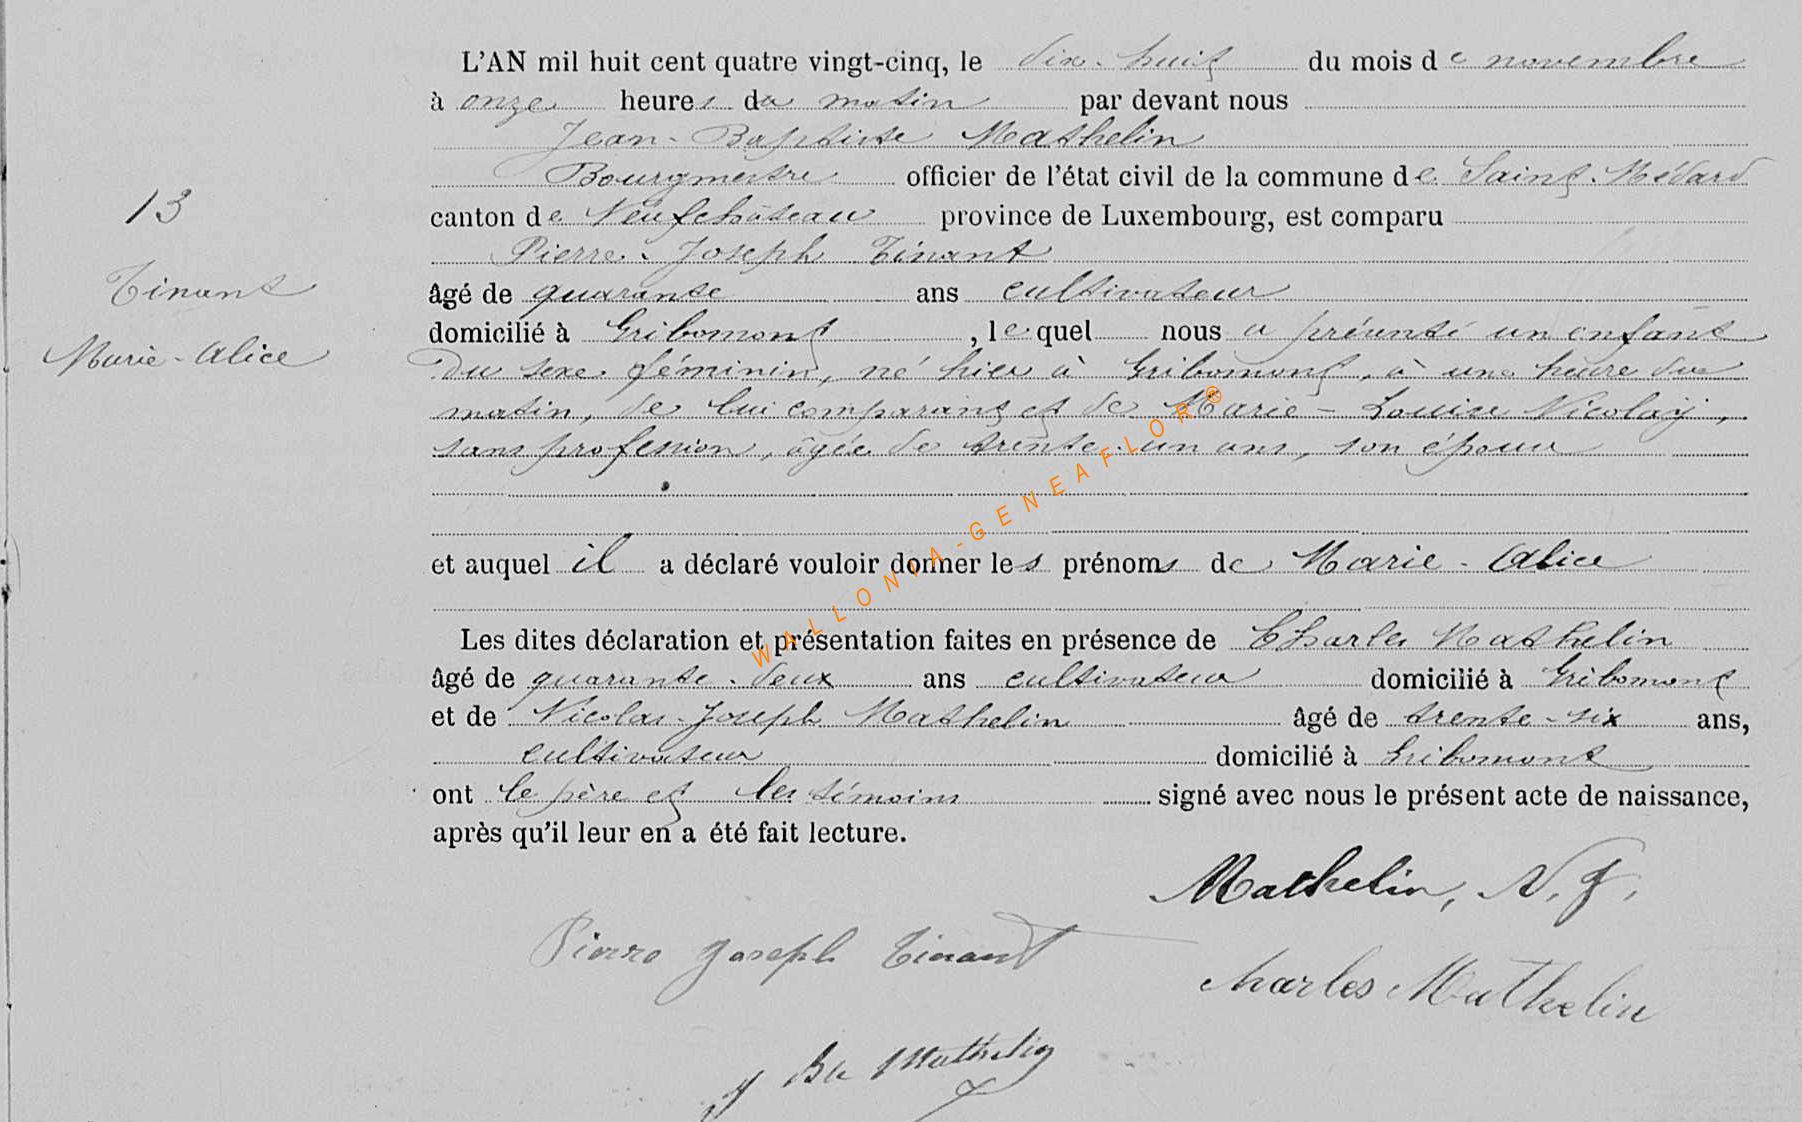 13
Tinant
Marie-Alice
L'AN mil huit cent quatre vingt-cinq, le dix-huit du mois de novembre
à onze heures du matin par devant nous
Jean-Baptiste Mathelin
Bourgmestre officier de l'état civil de la commune de Saint-Médard
canton de Neufchâteau province de Luxembourg, est comparu
Pierre-Joseph Tinant
âgé de quarante ans cultivateur
domicilié à Gribomont, lequel nous a présenté un enfant
du sexe féminin, né hier à Gribomont, à une heure du
matin, de lui comparant et de Marie-Louise Nicolaÿ,
sans profession, âgée de trente-un ans, son épouse
et auquel il a déclaré vouloir donner les prénoms de Marie-Alice
Les dites déclaration et présentation faites en présence de Charles Mathelin
âgé de quarante-deux ans cultivateur domicilié à Gribomont
et de Nicolas-Joseph Mathelin âgé de trente-six ans,
cultivateur domicilié à Gribomont
ont le père et les témoins signé avec nous le présent acte de naissance,
après qu'il leur en a été fait lecture.
Mathelin, N. J.
Pierre Joseph Tinant
Charles Mathelin
J Bte Mathelin
WALLONIA-GENEAFLOR®